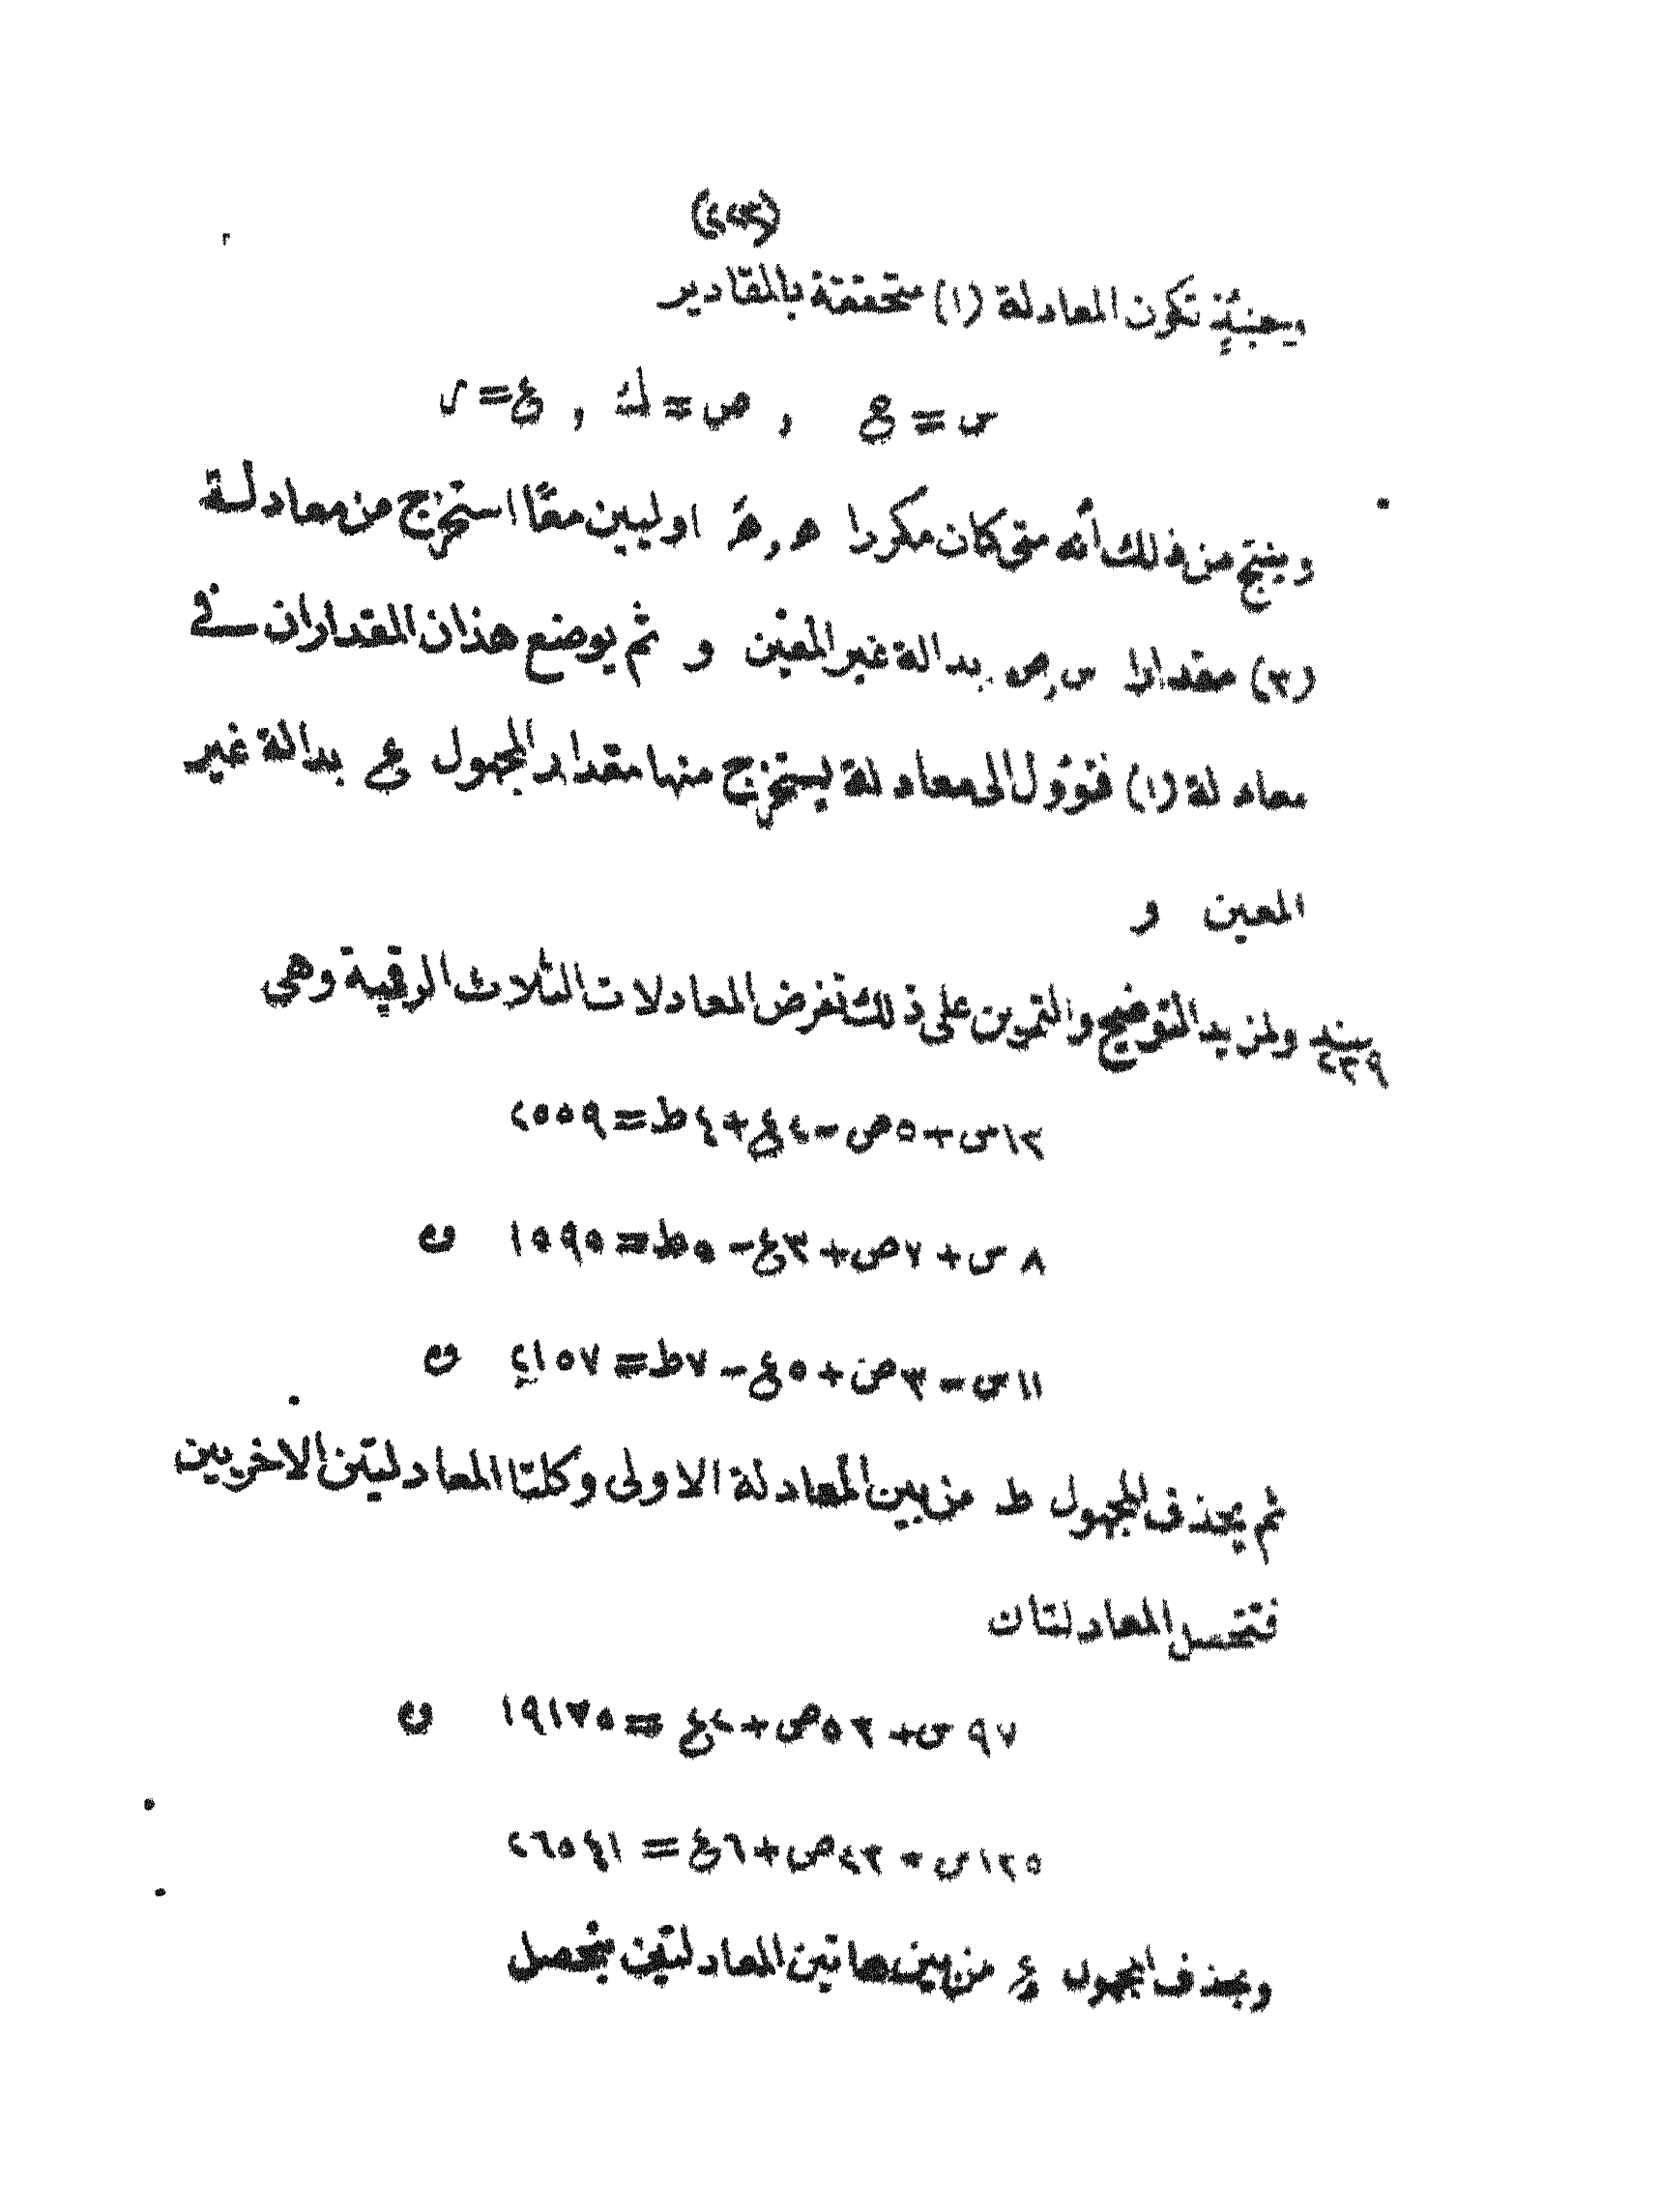 (٤٢٣)
وحينئذٍ تكون المعادلة (١) متحققة بالمقادير
س = ع , ص = ك , ع = ر
وينتج من ذلك أنه متى كان مكررا ھ, ھَ اوليين معًا استخرج من معادلة
(٣) مقدارا س, ص بدالة غير المعين و ثم يوضع هذان المقداران فى
معادلة (١) فتؤول الى معادلة يستخرج منها مقدار المجهول ع بدالة غير
المعين و
بند ولمزيد التوضيح والتمرين على ذلك نفرض المعادلات الثلاث الرقمية وهى
٢٣٩
١٢س + ٥ص - ٤ع + ٤ط = ٢٥٥٩
٨س + ٧ص + ٣ع - ٥ط = ١٥٩٥ و
١١س - ٣ص + ٥ع - ٧ط = ٢١٥٧ و
ثم يحذف المجهول ط من بين المعادلة الاولى وكلتا المعادلتين الاخريين
فتتحصل المعادلتان
٩٢س + ٥٣ص + ٢ع = ١٩١٧٥ و
١٢٥س - ٢٣ص + ٦ع = ٢٦٥٤١
وبحذف المجهول ع من بين هاتين المعادلتين يتحصل